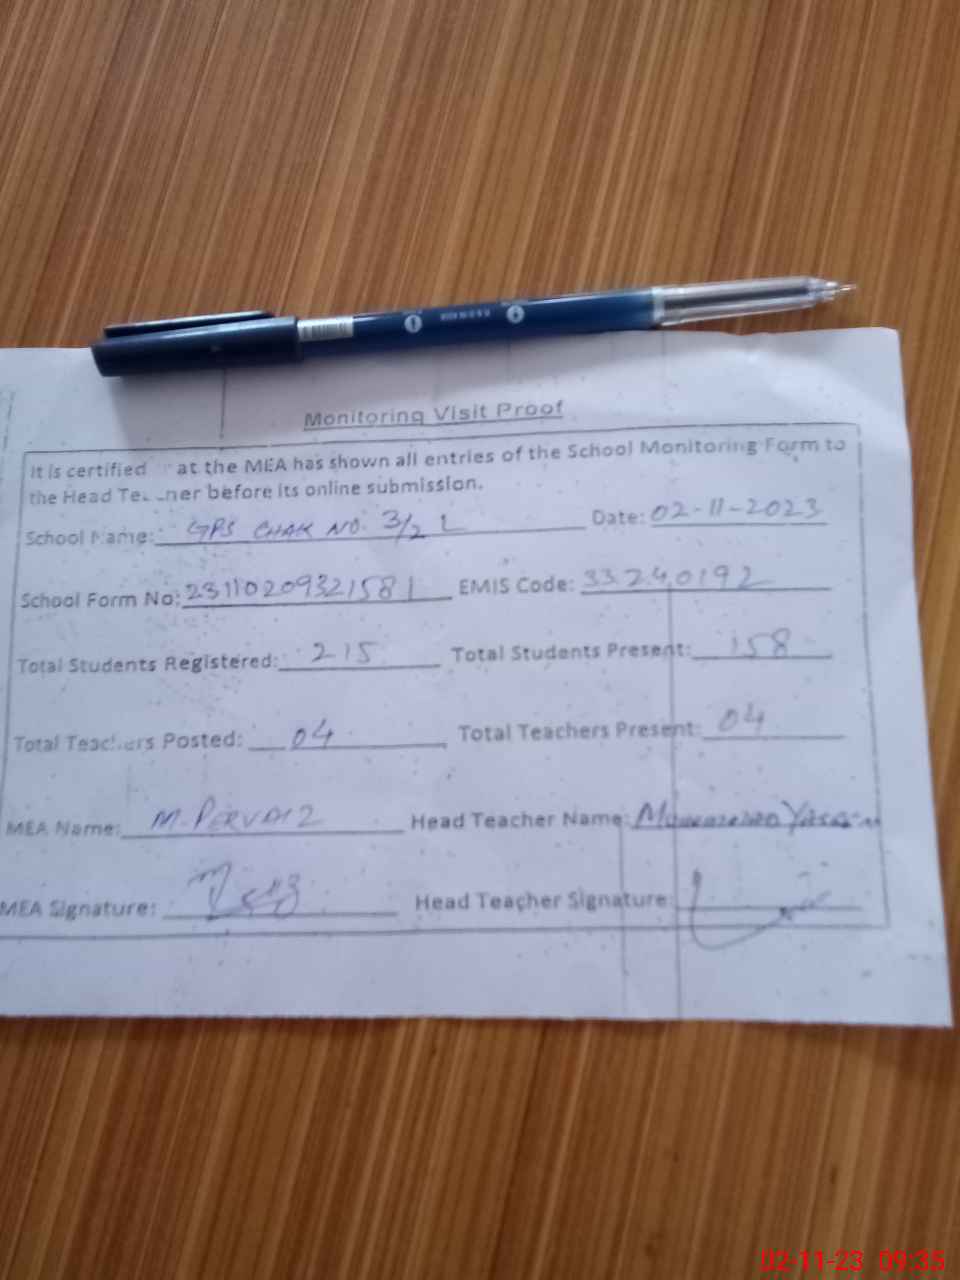 Monitoring Visit Proof
It is certified at the MEA has shown all entries of the School Monitoring Form to
the Head Teacher before its online submission.
School Name: GPS CHAK NO. 3/2 L Date: 02-11-2023
School Form No: 23110209321581 EMIS Code: 33240192
Total Students Registered: 215 Total Students Present: 158
Total Teachers Posted: 04 Total Teachers Present: 04
MEA Name: M. PERVAIZ Head Teacher Name:
MEA Signature: Head Teacher Signature:
02-11-23 09:35